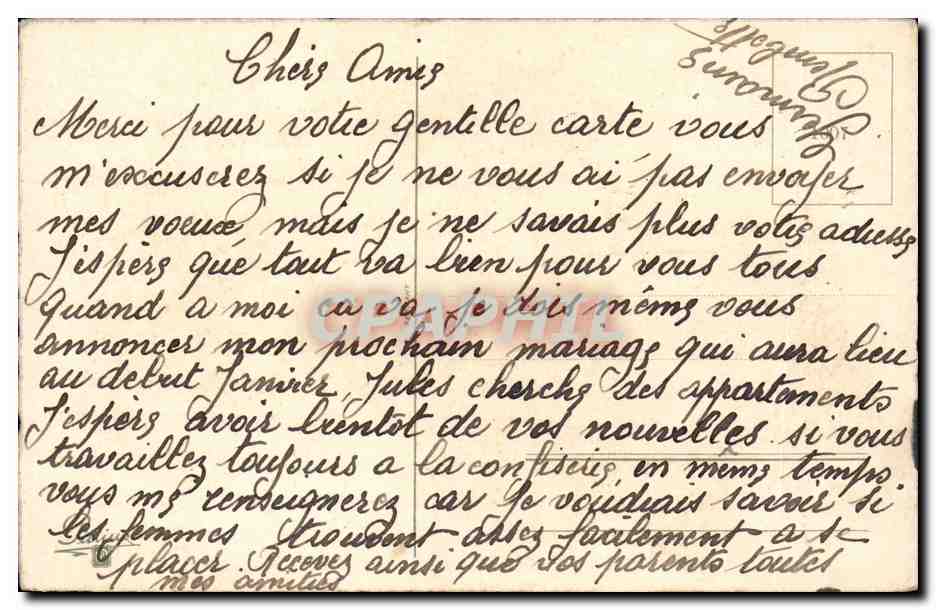 Chers Amis
Merci pour votre gentille carte vous
m'excuserez si je ne vous ai pas envoyer
mes voeux mais je ne savais plus votre adresse
J'espère que tout va bien pour vous tous
quand a moi ca va, je dois même vous
annoncer mon prochain mariage qui aura lieu
au debut Janvier, Jules cherche des appartements
J'espère avoir bientot de vos nouvelles. si vous
travaillez toujours a la confiserie en même temps
vous me renseignerez car je voudrais savoir si
les femmes trouvent assez facilement a se
placer. Recevez ainsi que vos parents toutes
mes amities
CPAPHIL